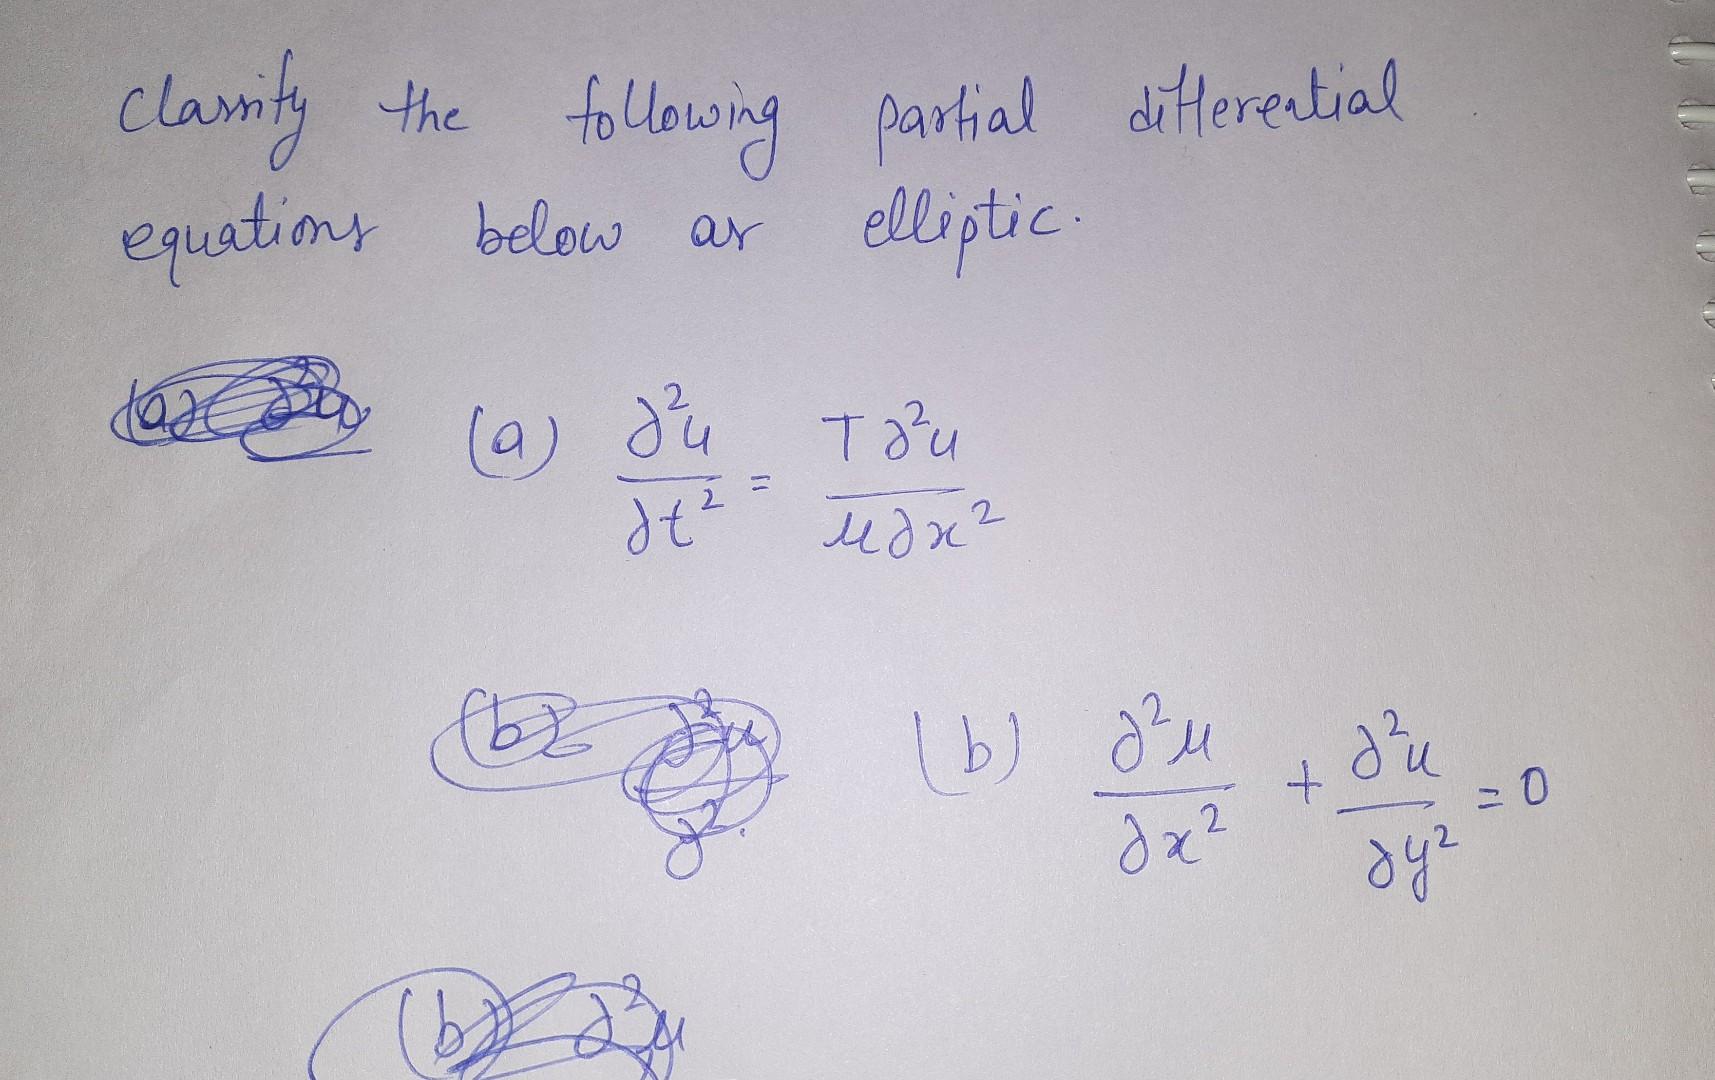 Classify the following partial differential
equations below as elliptic.
(a) ∂²u/∂t² = T∂²u/μ∂x²
(b) ∂²u/∂x² + ∂²u/∂y² = 0